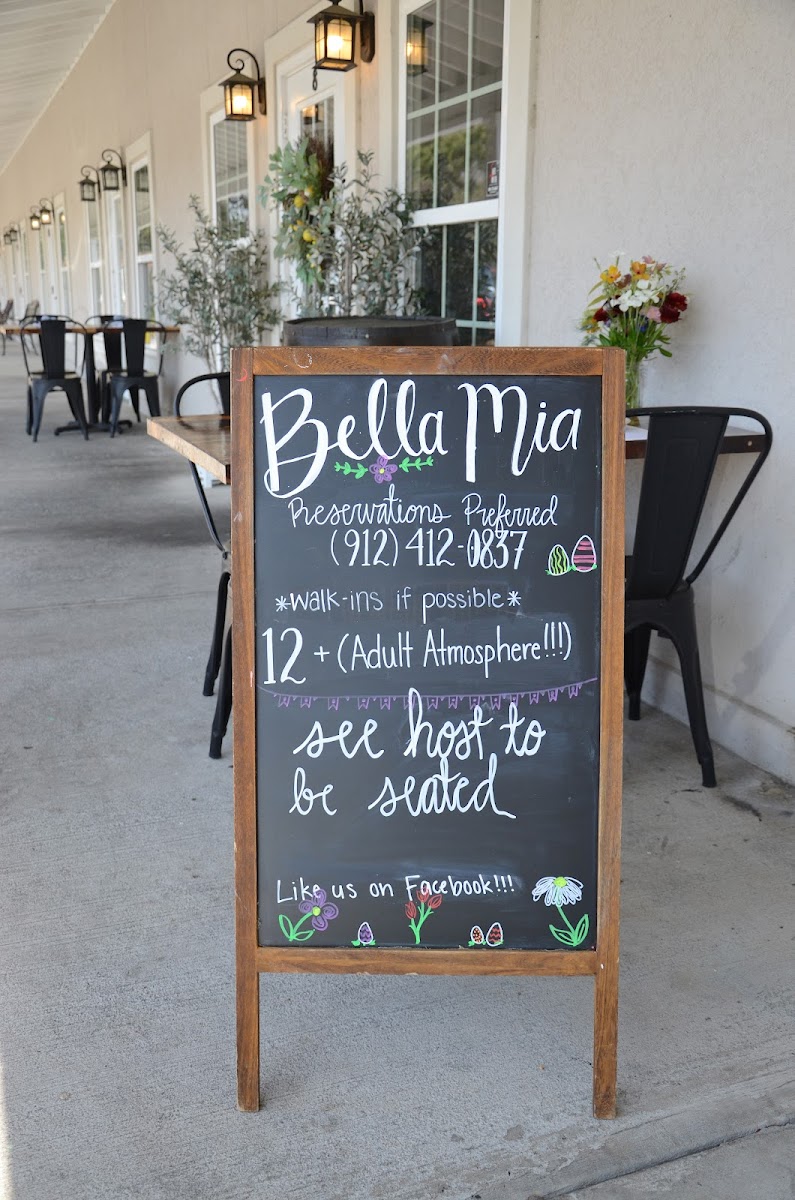 Bella Mia
Reservations Preferred
(912) 412-0837
*walk-ins if possible*
12 + (Adult Atmosphere!!!)
see host to
be seated
Like us on Facebook!!!